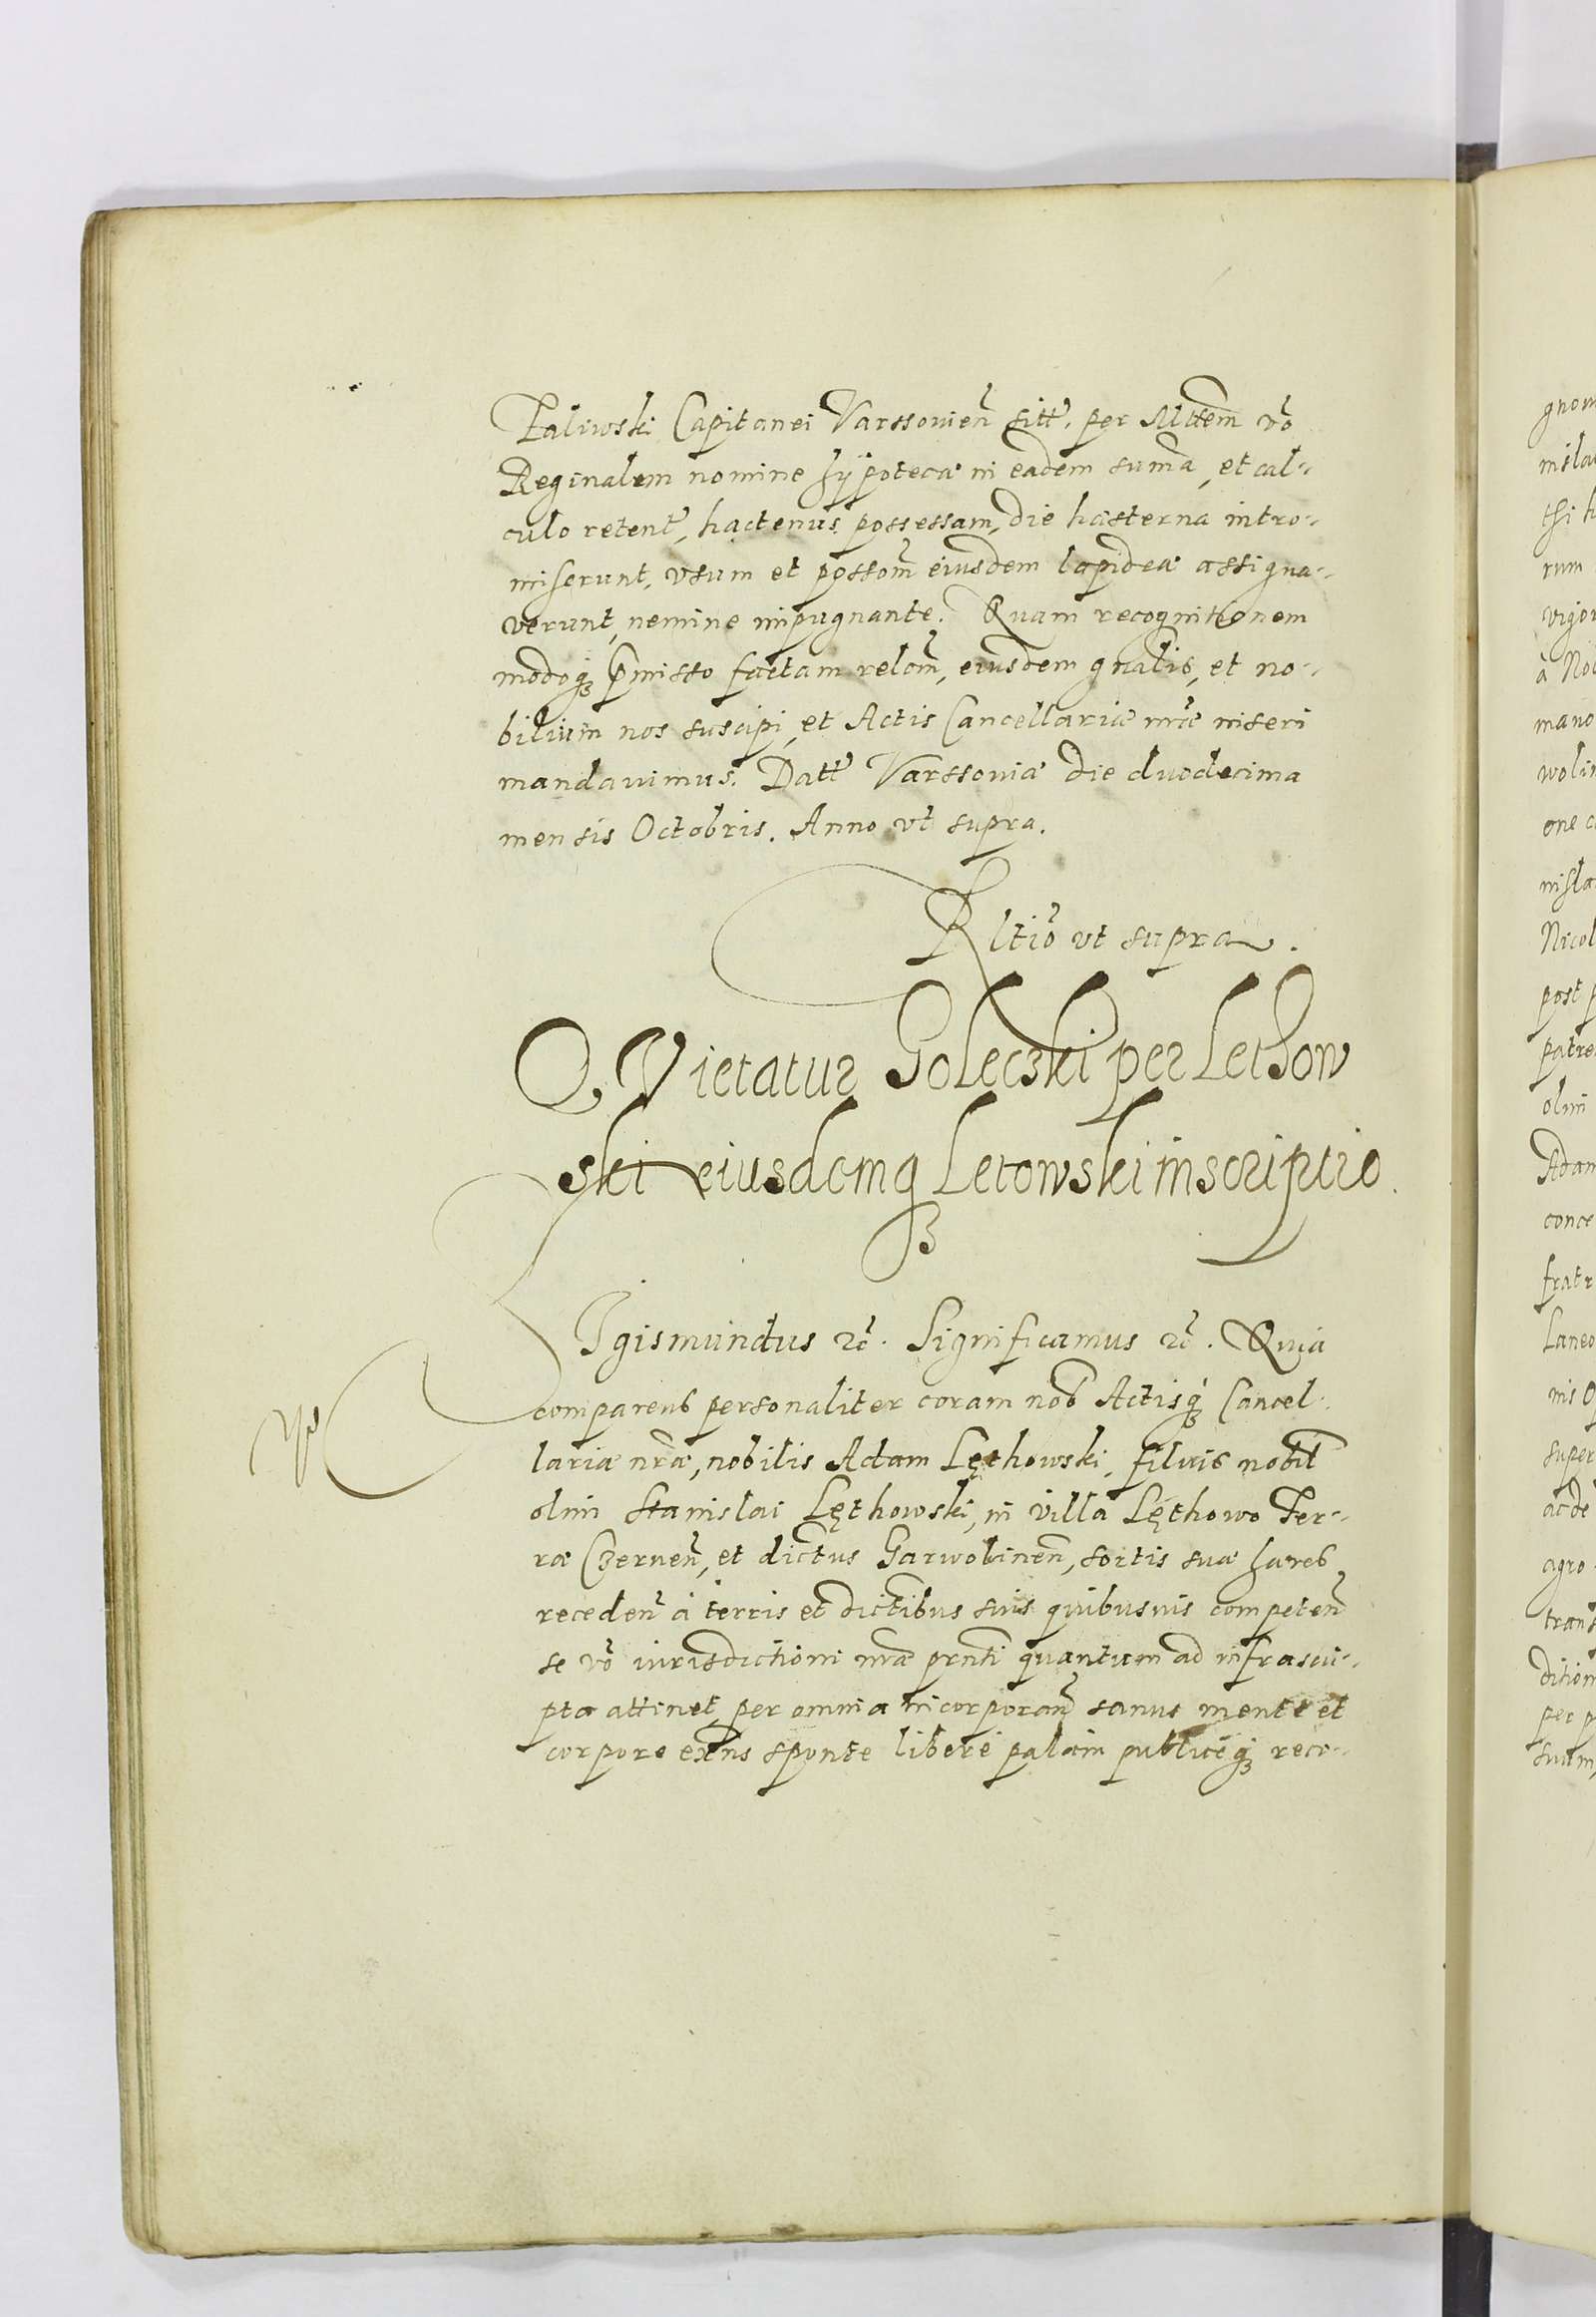 Zaliwski Capitanei Varssovien̄ sitt̄. per Mttem̄ vō
Reginalem nomine hÿpotecæ in eadem summa, et cal-
culo retent̄, hactenus possessam, die hæsterna intro-
miserunt, vsum et possom̄ eiusdem lapideæ assigna-
verunt, nemine impugnante. Quam recognitionem
modoq₃ p̄misso factam relom̄, eiusdem gnālis, et no-
bilium nos suscipi, et Actis Cancellariæ nr̄æ inseri
mandavimus. Datt̄ Varssoviæ die duodecima
mensis Octobris. Anno vt supra.
Rltiō vt supra.
QVietatur Goleczki per Lethow
ski eiusdemq₃ Letowski inscriptio.
SIgismundus ꝛc̄. Significamus ꝛc̄. Quia
comparens personaliter coram nob̄ Actisq₃ Cancel-
lariæ nr̄æ, nobilis Adam Lęthowski, filius nobil̄
olim Stanislai Lęthowski, in villa Lęthowo Ter-
ræ Czernen̄, et dictus Garwolinen̄, sortis suæ hæres
receden̄ à terris et dictibus suis quibusuis competen̄
se vō iurisdictioni nr̄æ prn̄ti quantum ad infrascri-
pta attinet, per omnia incorporan̄ sanus mente et
corpore exn̄s sponte liberè palàm publicèq₃ reco-
gnom
nisla
thi h
rum
vigor
à No
mano
wolin
one c
nisla
Nicol
post p
patre
olim
Adam
conce
fratr
Laneo
nis
super
ac de
agro
trans
dition
per p
suam,